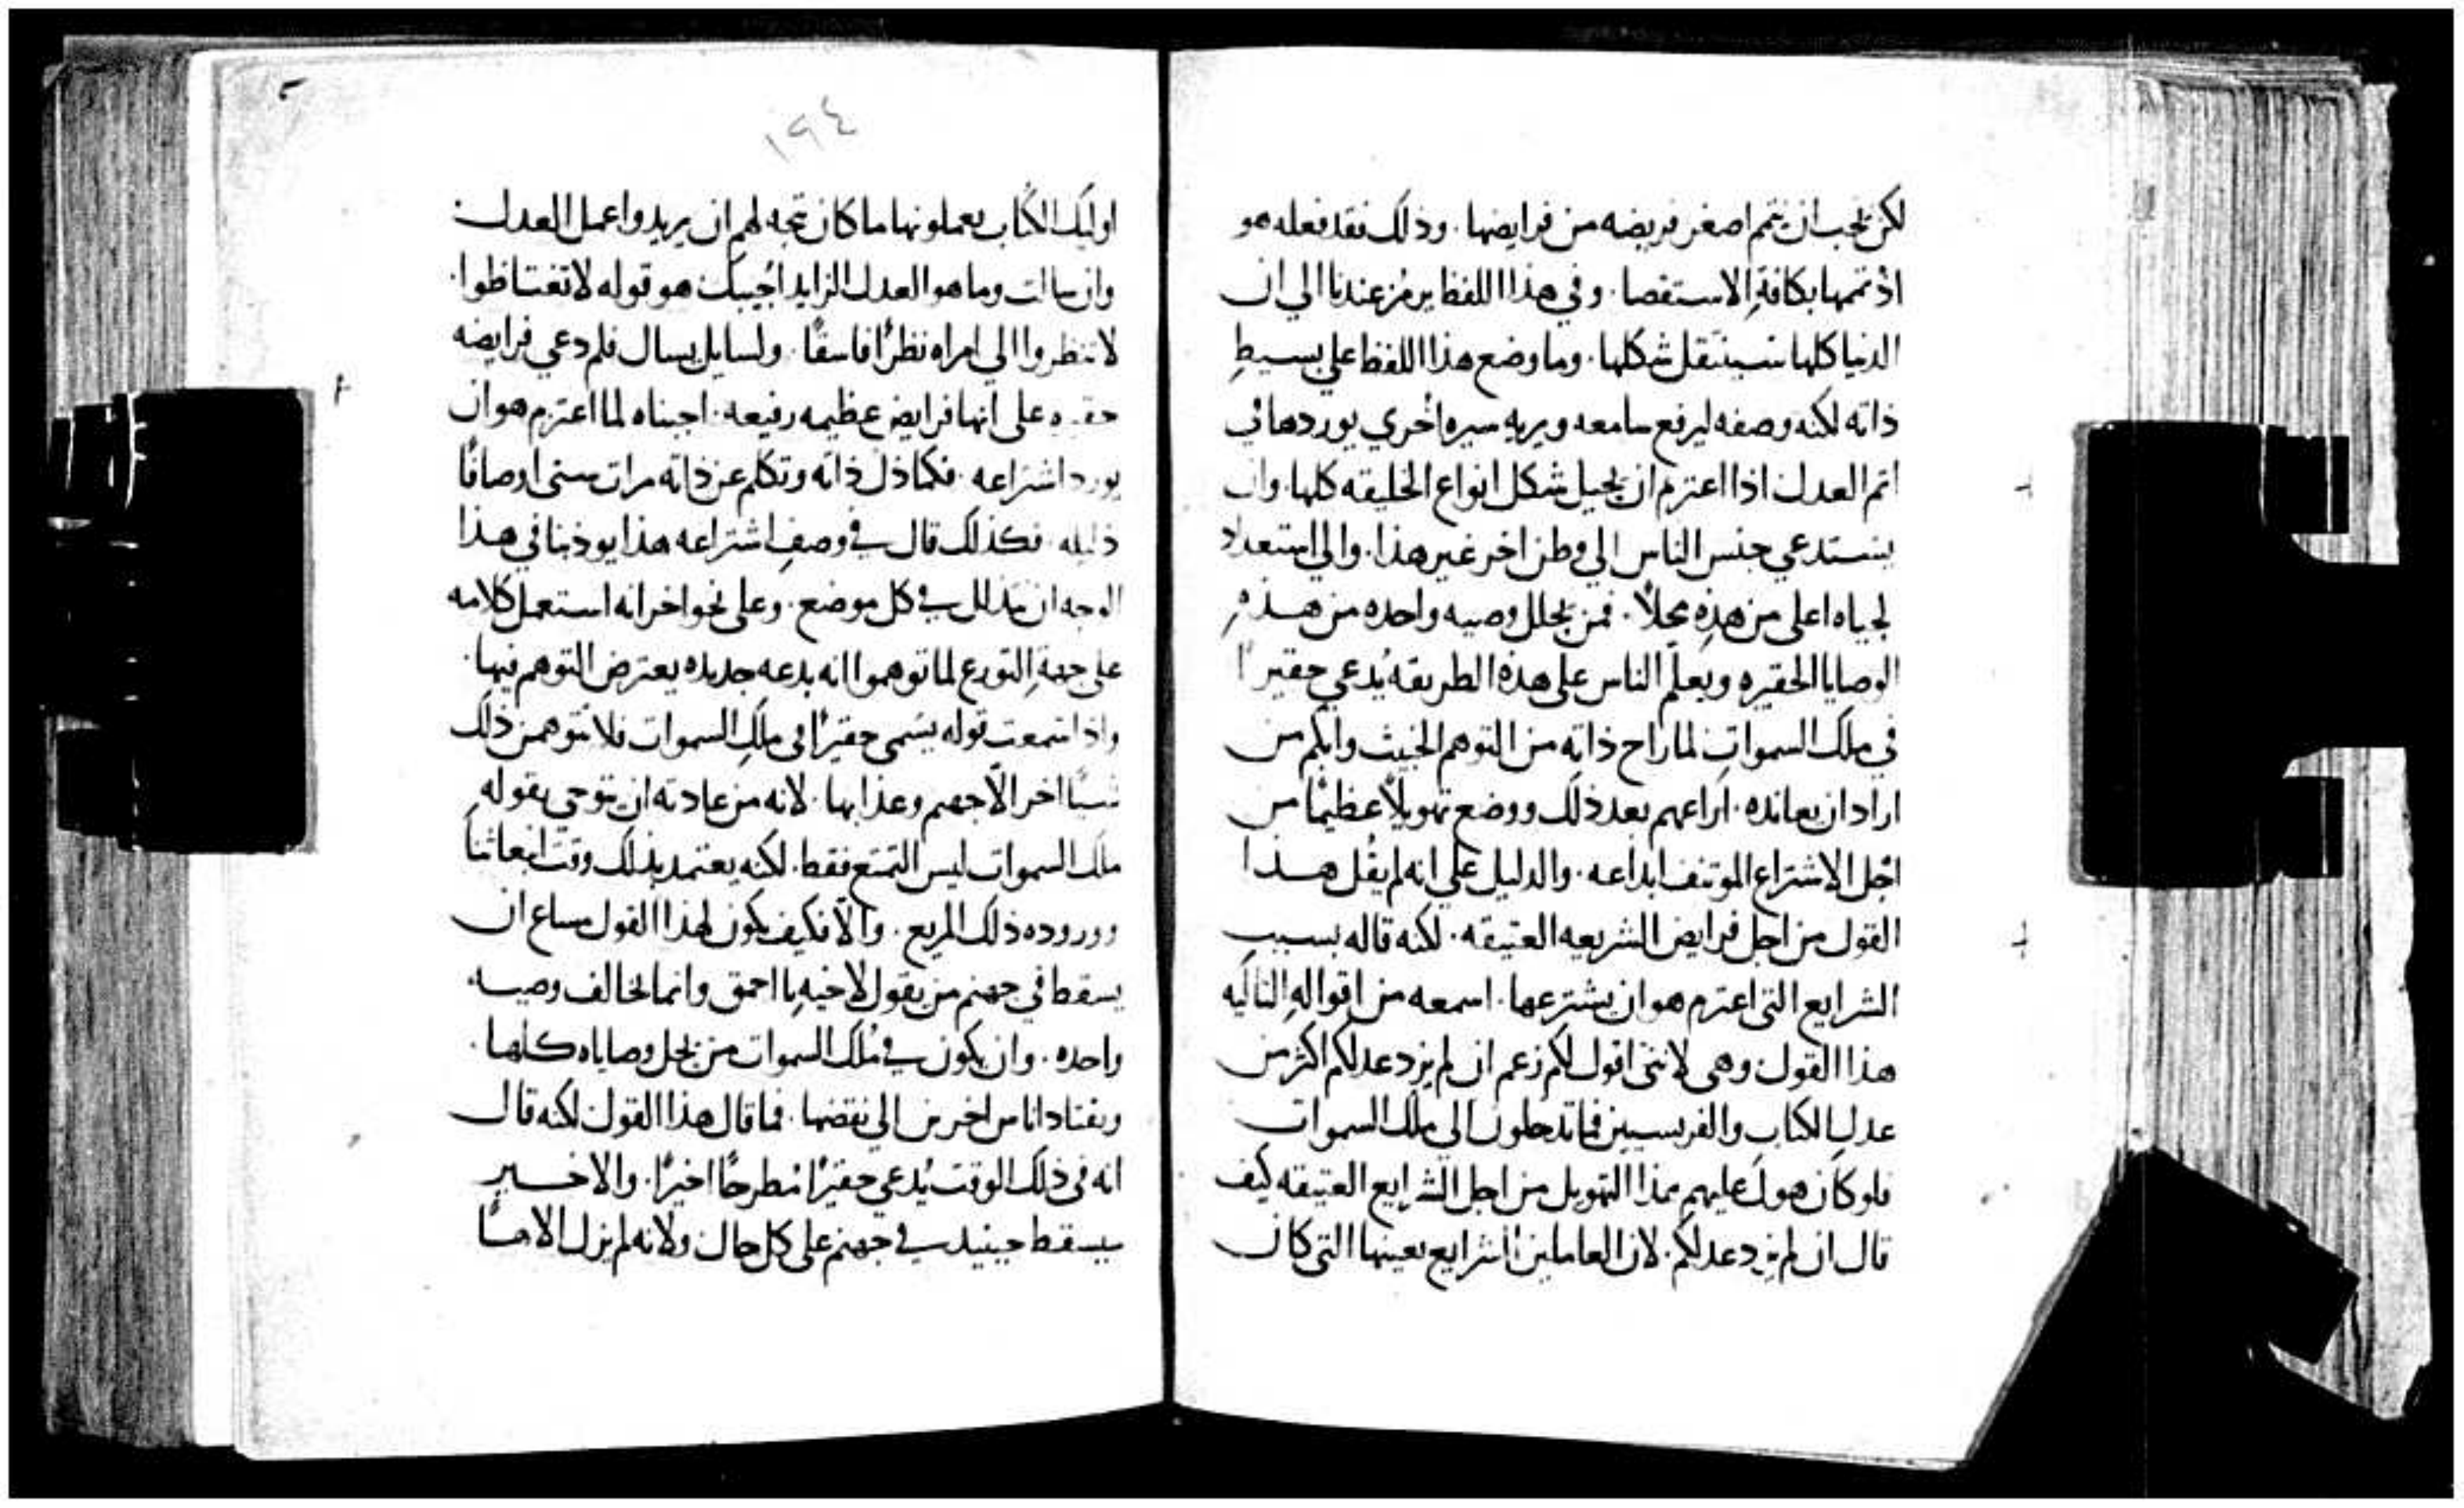 لكن يجب ان تتم اصغر فريضه من فرايضها . وذلك فقد فعله هو
اذ تممها بكافةِ الاستقصا . وفي هذا اللفظ يرمُز عندنا الي ان
الدنيا كلها سينتقل شكلها . وما وضع هذا اللفظ علي بسيطِ
ذاته لكنه وصفه ليرفع سامعه ويريه سيره اُخري يوردها في
اتم العدل اذا اعتزم ان يحيل شكل انواع الخليقه كلها . وان
يستدعي جنس الناس الي وطن اخر غير هذا . والي استعداد
لحياه اعلي من هذِه محلاً . فمن يحلل وصيه واحده من هذهِ
الوصايا الحقيره ويعلّم الناس علي هذه الطريقه يُدعي حقيرًا
في ملك السمواتِ لما راح ذاته من التوهم الخبيث وابكم من
اراد ان يعانده . اراعهم بعد ذلك ووضع تهويلاً عظيمًا من
اجل الاشتراع الموتنف ابداعه . والدليل علي انه لم يقُل هذا
القول من اجل فرايض الشريعه العتيقه . لكنه قاله بسببِ
الشرايع التي اعتزم هو ان يشترعها . اسمعه من اقوالهِ التاليه
هذا القول وهي لانني اقول لكم زعم ان لم يزد عدلكم اكثر من
عدلِ الكتابِ والفريسيين فما تدخلون الي ملك السموات
فلو كان هول عليهم هذا التهويل من اجل الشرايع العتيقه كيف
قال ان لم يزد عدلكم . لان العاملين الشرايع بعينها التي كان
١٩٤
اوليك الكُتاب يعملونها ما كان يتجه لهم ان يزيدوا عمل العدل .
وان سالت وما هو العدل الزايد اُجيبك هو قوله لا تغتاظوا .
لا تنظروا الي امراه نظرًا فاسقًا . ولسايل يسال فلم دعي فرايضه
حقيره علي انها فرايض عظيمه رفيعه . اجبناه لما اعتزم هو ان
يورد اشتراعه . فكما ذلل ذاته وتكلم عن ذاته مرات ستي اوصافًا
ذليله . فكذلك قال في وصفِ اشتراعه هذا يودبنا في هذا
الوجه ان نتذلل في كل موضع . وعلي نحو اخر انه استعمل كلامه
علي جهةِ التورع لما توهموا انه بدعه جديده يعترض التوهم فيها .
واذا سمعت قوله يسَمي حقيرًا في ملكِ السموات فلا تتوهمن ذلك
شيًا اخر الّا جهنم وعذابها . لانه من عادته ان يتوخي بقولهِ
ملك السموات ليس التمتع فقط . لكنه يعتمد بذلك وقت انبعاثنا
ووروده ذلك المريع . والّا فكيف يكون لهذا القول مساغ ان
يسقط في جهنم من يقول لاخيهِ يا احمق وانما خالف وصيه
واحده . وان يكون في مُلك السموات من يحل وصاياه كلها .
ويقتاد اناس اخرين الي نقضها . فما قال هذا القول لكنه قال
انه في ذلك الوقت يُدعي حقيرًا مُطرحًا اخيرًا . والاخير
سيسقط حينيد في جهنم علي كل حال ولانه لم يزل الاهسًا